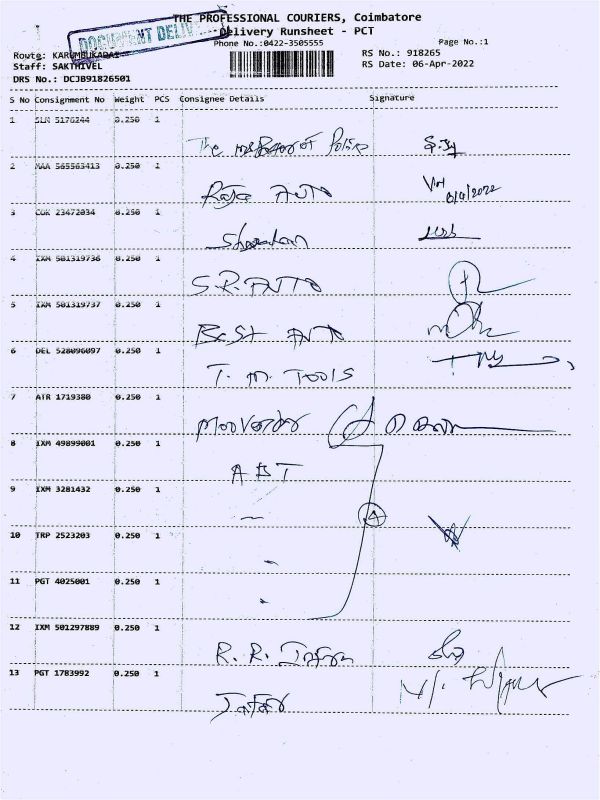 THE PROFESSIONAL COURIERS, Coimbatore
DOCUMENT DELIV
Delivery Runsheet - PCT
Phone No.:0422-3505555
Page No.:1
Route: KARUMBUKADAI
RS No.: 918265
Staff: SAKTHIVEL
RS Date: 06-Apr-2022
DRS No.: DCJB91826501
S No Consignment No Weight PCS Consignee Details Signature
1 SLM 5176244 0.250 1
The of Police
2 MAA 565563413 0.250 1
Raja AUTO 6/4/2022
3 COK 23472034 0.250 1
4 IXM 501319736 0.250 1
S.R. AUTO
5 IXM 501319737 0.250 1
Best AUTO
6 DEL 528096097 0.250 1
T. M. TOOLS
7 ATR 1719380 0.250 1
8 IXM 49899001 0.250 1
ABT
9 IXM 3281432 0.250 1
4
10 TRP 2523203 0.250 1
11 PGT 4025001 0.250 1
12 IXM 501297889 0.250 1
R. R.
13 PGT 1783992 0.250 1
Jafar